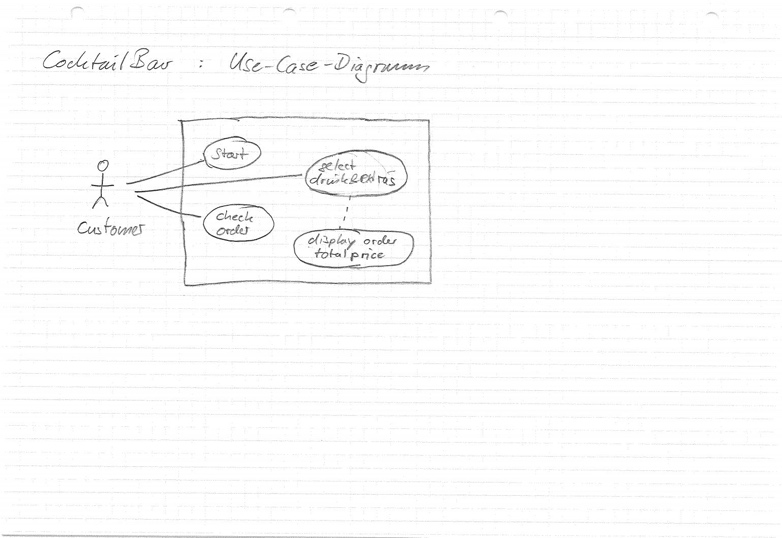 CocktailBar : Use-Case-Diagramm
start
select
drink&extras
Customer
check
order
display order
total price